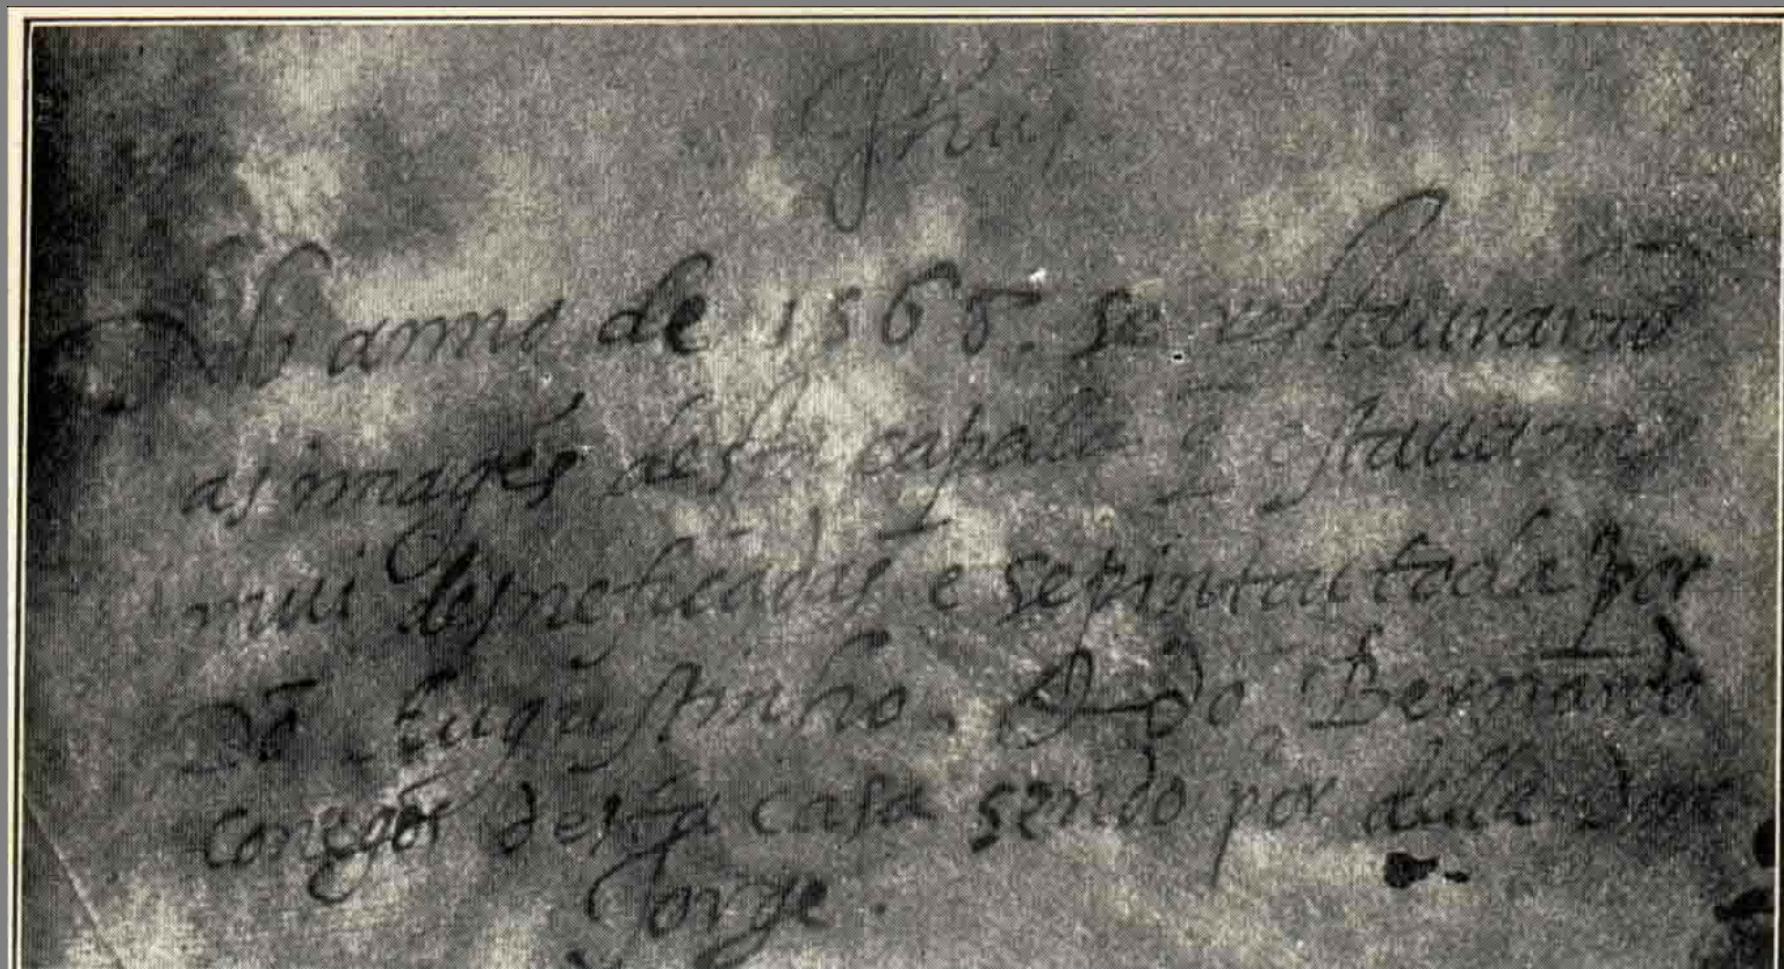 Jhus.
No anno de 1565. se restaurarão
as images desta capala q̃ stauam
mui desneficadas e se pintou toda por
Dõ. Augustinho. E dõ Bernardo
conegos desta casa sendo por della Dom
Jorge.